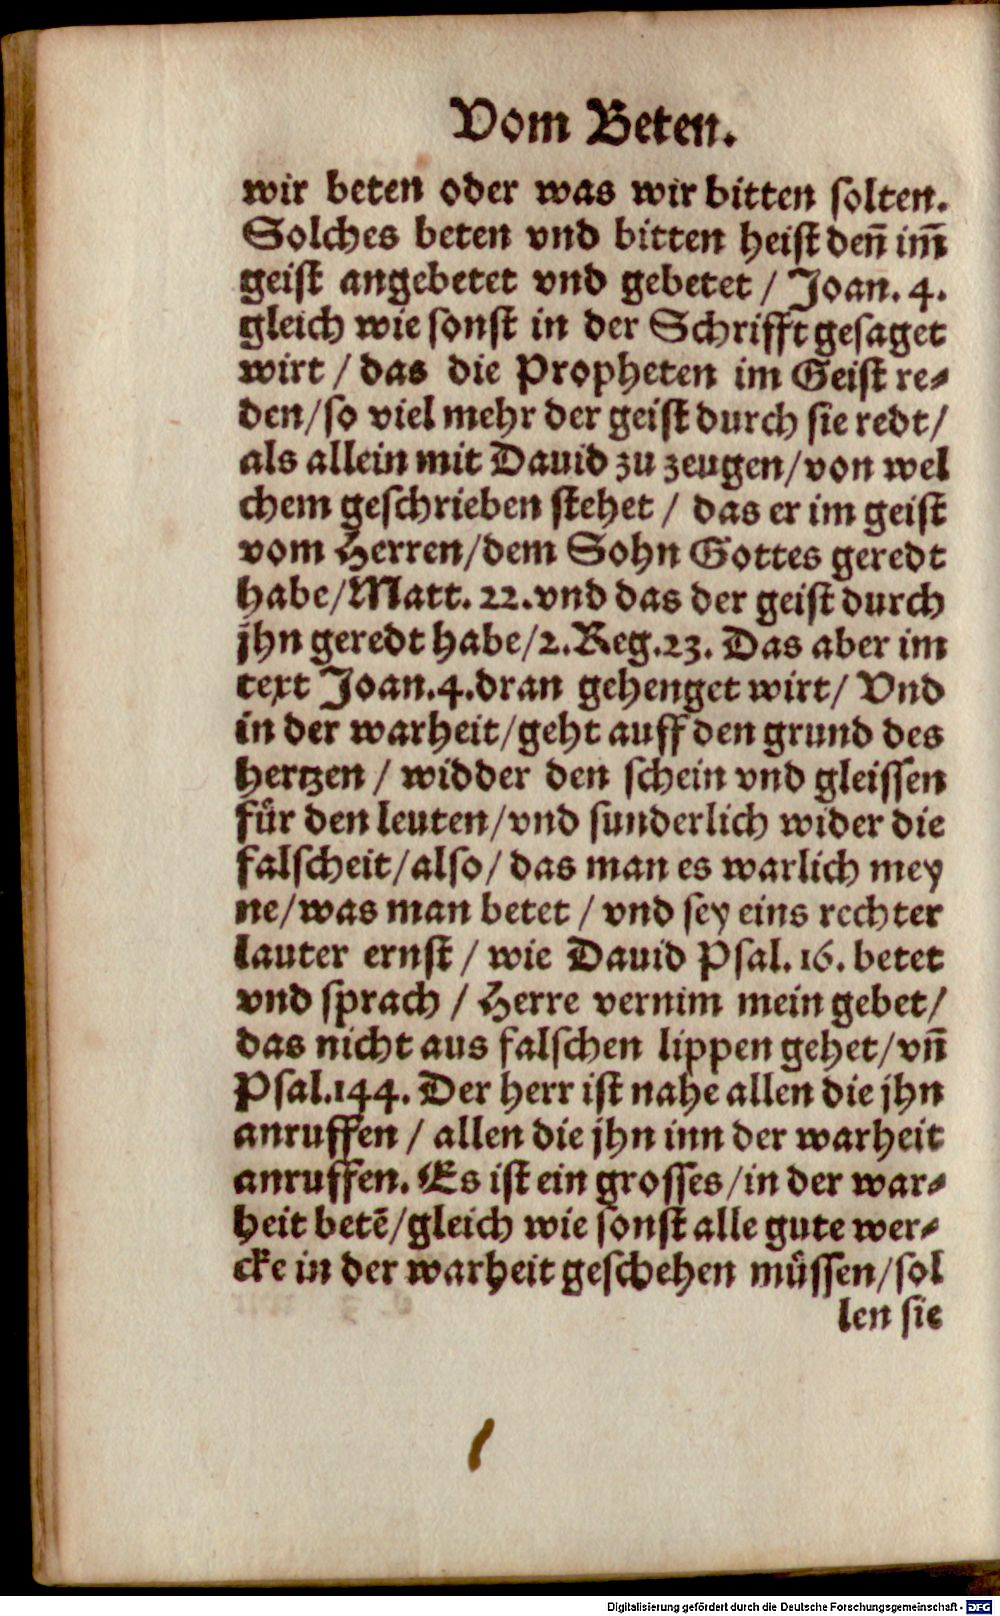 Vom Beten.
wir beten oder was wir bitten solten.
Solches beten vnd bitten heist deñ im̃
geist angebetet vnd gebetet / Joan. 4.
gleich wie sonst in der Schrifft gesaget
wirt / das die Propheten im Geist re⸗
den/so viel mehr der geist durch sie redt/
als allein mit Dauid zu zeugen/von wel
chem geschrieben stehet / das er im geist
vom Herren/dem Sohn Gottes geredt
habe/Matt. 22.vnd das der geist durch
jhn geredt habe/2.Reg.23. Das aber im
text Joan.4.dran gehenget wirt/ Vnd
in der warheit/geht auff den grund des
hertzen / widder den schein vnd gleissen
für den leuten/vnd sunderlich wider die
falscheit/also/ das man es warlich mey
ne/was man betet / vnd sey eins rechter
lauter ernst / wie Dauid Psal. 16. betet
vnd sprach / Herre vernim mein gebet/
das nicht aus falschen lippen gehet/vñ
Psal.144. Der herr ist nahe allen die jhn
anruffen / allen die jhn inn der warheit
anruffen. Es ist ein grosses/in der war⸗
heit betē/gleich wie sonst alle gute wer⸗
cke in der warheit geschehen müssen/sol
len sie
Digitalisierung gefördert durch die Deutsche Forschungsgemeinschaft - DFG